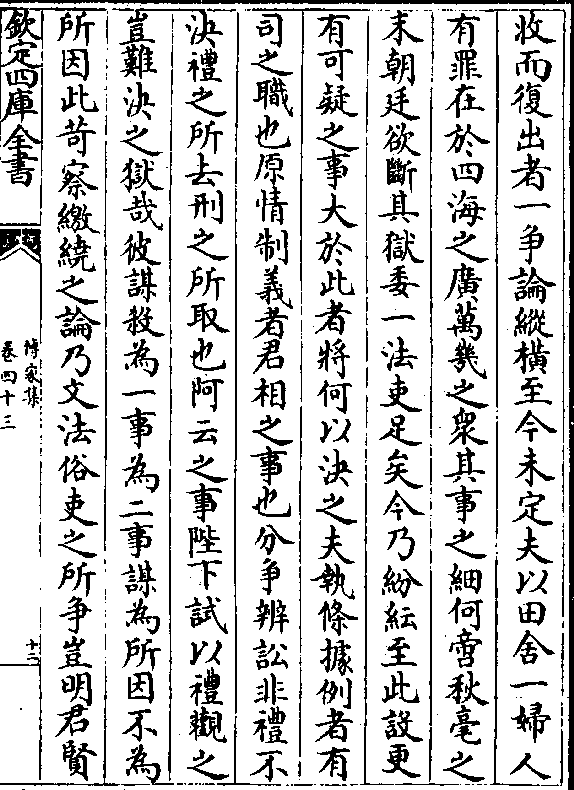 收而復出者一争論縱横至今未定夫以田舍一婦人
有罪在於四海之廣萬幾之衆其事之細何啻秋毫之
末朝廷欲斷其獄委一法吏足矣今乃紛紜至此設更
有可疑之事大於此者將何以決之夫執條據例者有
司之職也原情制義者君相之事也分争辨訟非禮不
決禮之所去刑之所取也阿云之事陛下試以禮觀之
豈難決之獄哉彼謀殺為一事為二事謀為所因不為
所因此苛察繳繞之論乃文法俗吏之所争豈明君賢
欽定四庫全書
傳家集
卷四十三
十二